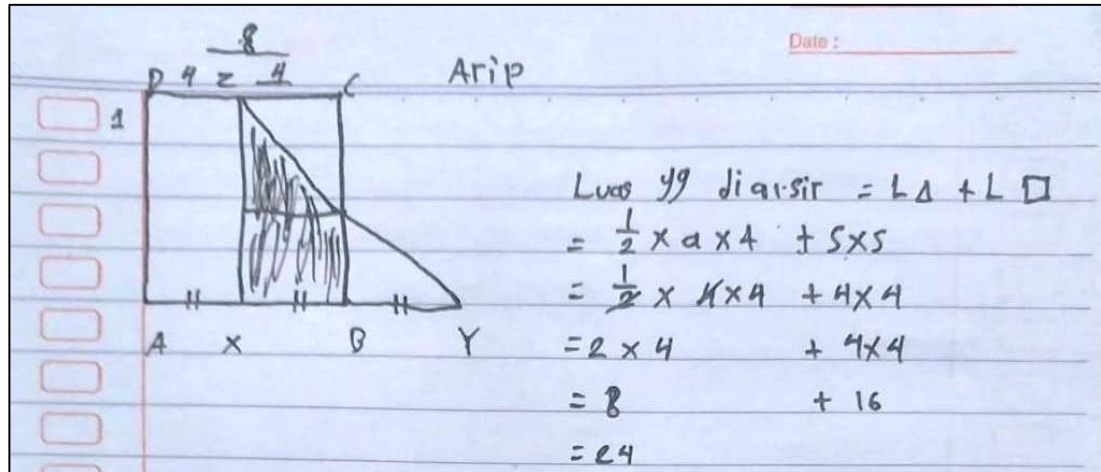 Date :
8
D 4 Z 4 C
Arip
1
Luas yg diarsir = L△ + L□
= 1/2 × a × 4 + 5×5
= 1/2 × 4×4 + 4×4
= 2 × 4 + 4×4
= 8 + 16
= 24
A X B Y